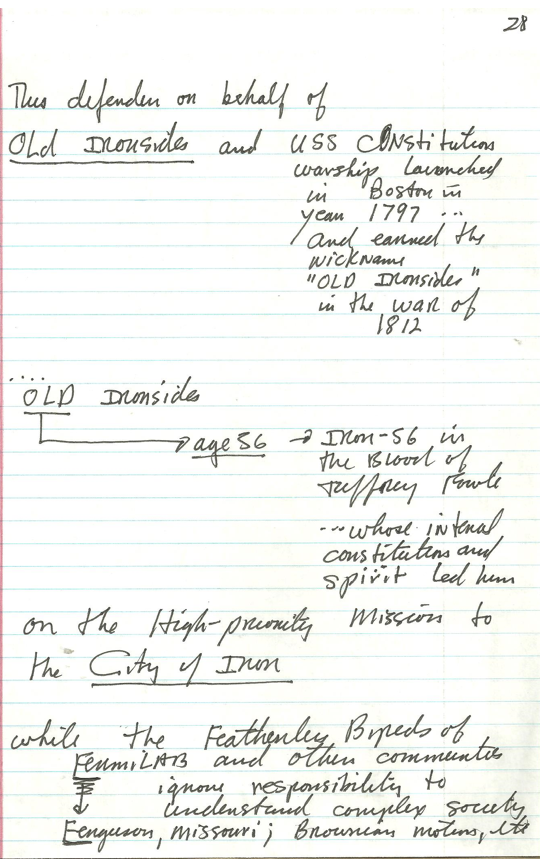 28
This defender on behalf of
OLD IRONSIDES and USS CONstitution
warship launched
in Boston in
year 1797 ...
and earned the
nickname
"OLD IRONsides"
in the war of
1812
....
OLD IRONsides
age 56 → IRON-56 in
the Blood of
Jeffrey
...whose internal
constitution and
spirit led him
on the High-priority Mission to
the City of Iron
while the Featherley Bipeds of
FermiLAB and other communities
ignore responsibility to
understand complex society
Ferguson, Missouri; Brownian motions, etc